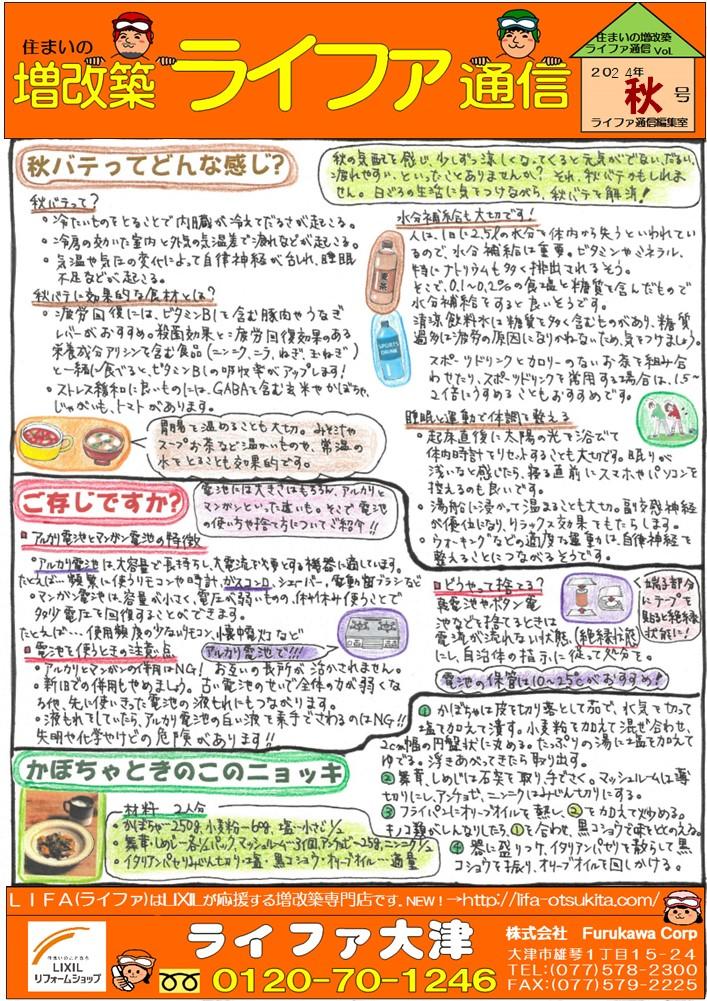 住まいの
増改築 ライファ通信
住まいの増改築
ライファ通信 Vol.
2024年
秋号
ライファ通信編集室
秋バテってどんな感じ?
秋の気配を感じ、少しずつ涼しくなってくると元気がでない、だるい、
疲れやすい、といったことありませんか? それ、秋バテかもしれま
せん。日ごろの生活に気をつけながら、秋バテを解消!
秋バテって?
・冷たいものをとることで内臓が冷えてだるさが起こる。
・冷房の効いた室内と外気の気温差で疲れなどが起こる。
・気温や気圧の変化によって自律神経が乱れ、睡眠
不足などが起こる。
秋バテに効果的な食材とは?
・疲労回復には、ビタミンB1を含む豚肉やうなぎ
レバーがおすすめ。殺菌効果と疲労回復効果のある
栄養成分アリシンを含む食品(ニンニク、ニラ、ねぎ、玉ねぎ)
と一緒に食べると、ビタミンB1の吸収率がアップします!
・ストレス緩和に良いものには、GABAを含む玄米やかぼちゃ、
じゃがいも、トマトがあります。
胃腸を温めることも大切。みそ汁や
スープお茶など温かいものや、常温の
水をとることも効果的です。
水分補給も大切です!
人は、1日に2.5Lの水分を体内から失うといわれてい
るので、水分補給は重要。ビタミンやミネラル、
特にナトリウムも多く排出されるそう。
そこで、0.1~0.2%の食塩と糖質を含んだもので
水分補給をすると良いそうです。
清涼飲料水は糖質を多く含むものがあり、糖質
過多は疲労の原因になりかねないため、気をつけましょう。
麦茶
SPORTS
DRINK
スポーツドリンクとカロリーのないお茶を組み合
わせたり、スポーツドリンクを常用する場合は、1.5~
2倍にうすめることもおすすめです。
睡眠と運動で体調を整える
・起床直後に太陽の光を浴びて
体内時計をリセットすることも大切です。眠りが
浅いなと感じたら、寝る直前にスマホやパソコンを
控えるのも良いです。
・湯船に浸かって温まることも大切。副交感神経
が優位になり、リラックス効果をもたらします。
・ウォーキングなどの適度な運動は、自律神経を
整えることにつながるそうです。
ご存じですか?
電池には大きさはもちろん、アルカリと
マンガンといった違いも。そこで電池
の使い方や捨て方についてご紹介!!
アルカリ電池とマンガン電池の特徴
・アルカリ電池は、大容量で長持ちし、大電流で火事とする機器に適しています。
たとえば…頻繁に使うリモコンや時計、ガスコンロ、シェーバー、電動歯ブラシなど
・マンガン電池は、容量が小さく、電圧が弱いもの、休み休み使うことで
多少電圧を回復することができます。
たとえば…使用頻度の少ないリモコン、懐中電灯など
電池を使うときの注意点
アルカリ電池で!!!
・アルカリとマンガンの併用はNG! お互いの長所が活かされません。
・新旧での併用もやめましょう。古い電池のせいで全体の力が弱くな
る他、先に使いきった電池の液もれにもつながります。
・液もれをしていたら、アルカリ電池の白い液を素手でさわるのはNG!!
失明や化学やけどの危険があります!!
どうやって捨てる?
乾電池やボタン電
池などを捨てるときは
電流が流れない状態、(絶縁状態)
にし、自治体の指示に従って処分を。
端子部分
にテープを
貼ると絶縁
状態に!
電池の保管は10~25℃がおすすめ!
かぼちゃときのこのニョッキ
材料 2人分
・かぼちゃ…250g、小麦粉…60g、塩…小さじ1/2
・舞茸、しめじ…各1/2パック、マッシュルーム…3個、アンチョビ…25g、ニンニク1/2
・イタリアンパセリみじん切り・塩・黒コショウ・オリーブオイル…適量
① かぼちゃは皮を切り落として茹で、水気を切って
塩を加えて潰す。小麦粉を加えて混ぜ合わせ、
2cm幅の円盤状に丸める。たっぷりの湯に塩を加えて
ゆでる。浮きあがってきたら取り出す。
② 舞茸、しめじは石突を取り、手でさく。マッシュルームは薄
切りにし、アンチョビ、ニンニクはみじん切りにする。
③ フライパンにオリーブオイルを熱し、②を加えて炒める。
キノコ類がしんなりしたら、①を合わせ、黒コショウで味をととのえる。
④ 器に盛りつけ、イタリアンパセリを散らして黒
コショウを振り、オリーブオイルを回しかける。
LIFA(ライファ)はLIXILが応援する増改築専門店です。NEW!→http://lifa-otsukita.com/
住まいのことなら
LIXIL
リフォームショップ
ライファ大津
0120-70-1246
株式会社 Furukawa Corp
大津市雄琴1丁目15-24
TEL:(077)578-2300
FAX:(077)579-2225